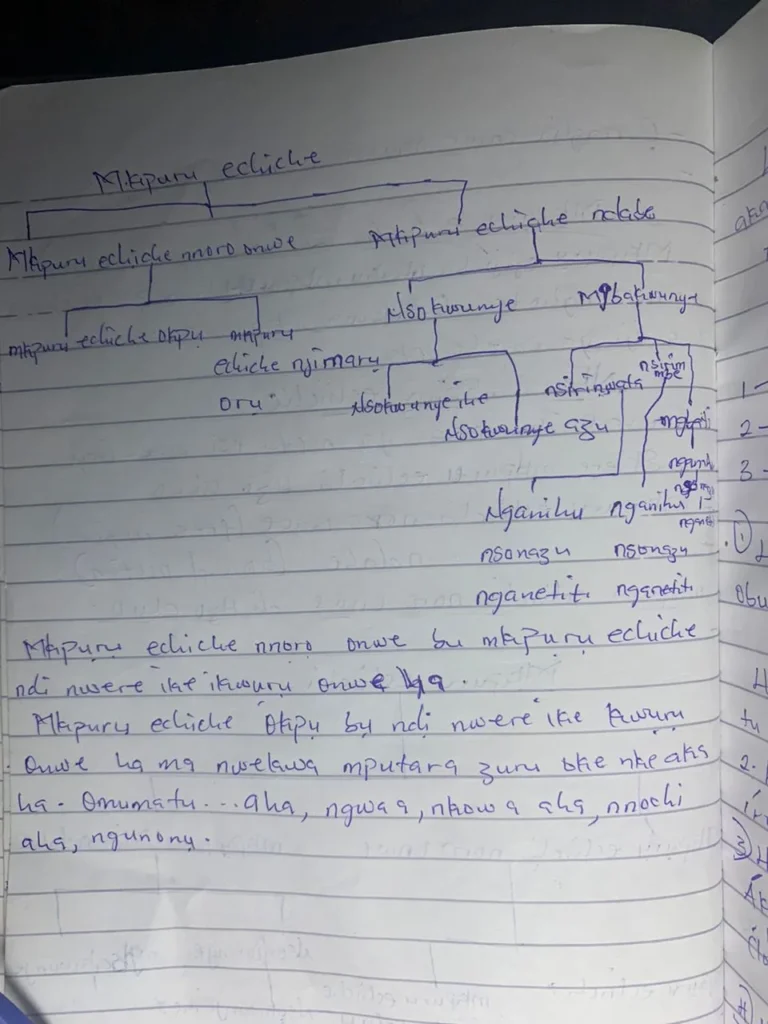 Mkpuru echiche
Mkpuru echiche nnoro onwe
Mkpuru echiche ndabe
mkpuru echiche Okpu
mkpuru
echiche njimaru
oru
Nsokwunye
Mgbakwunye
Nsokwunye ihe
Nsokwunye azu
nsirinwata
nsirim
mbe
Nganihu nganihu
nsonazu nsonazu
nganetiti nganetiti
Mkpuru echiche nnoro onwe bu mkpuru echiche
ndi nwere ike ikwuru onwe ha.
Mkpuru echiche Okpu bu ndi nwere ike kwuru
Onwe ha ma nwekwa mputara zuru oke nke aka
ha. Omumatu... aha, ngwa a, nkowa aha, nnochi
aha, ngunonu.
1-
2-
3-